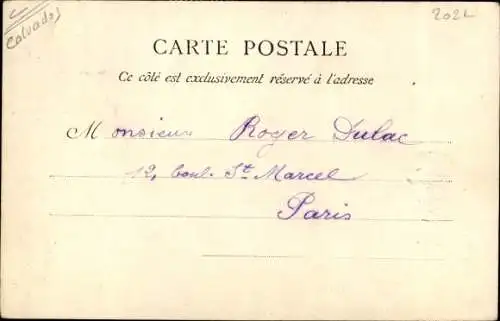 Calvados
202L
CARTE POSTALE
Ce côté est exclusivement réservé à l'adresse
Monsieur Roger Dulac
12, boul. St. Marcel
Paris